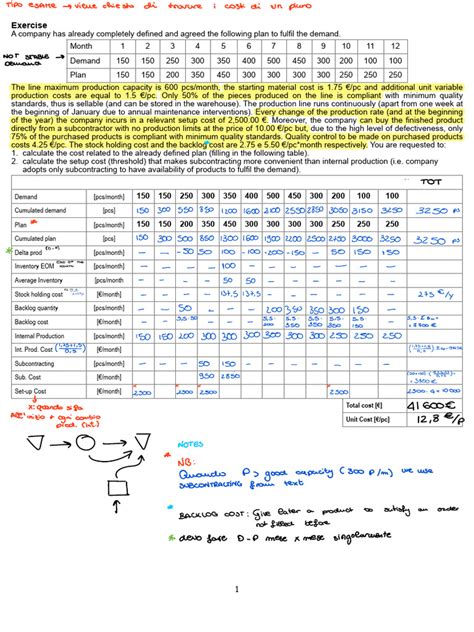 TIPO ESAME → viene chiesto di trovare i costi di un piano
Exercise
A company has already completely defined and agreed the following plan to fulfil the demand.
NOT STABLE DEMAND
Month 1 2 3 4 5 6 7 8 9 10 11 12
Demand 150 150 250 300 350 400 500 450 300 200 100 100
Plan 150 150 200 350 450 300 300 300 300 250 250 250
The line maximum production capacity is 600 pcs/month, the starting material cost is 1.75 €/pc and additional unit variable
production costs are equal to 1.5 €/pc. Only 50% of the pieces produced on the line is compliant with minimum quality
standards, thus is sellable (and can be stored in the warehouse). The production line runs continuously (apart from one week at
the beginning of January due to annual maintenance interventions). Every change of the production rate (and at the beginning
of the year) the company incurs in a relevant setup cost of 2,500.00 €. Moreover, the company can buy the finished product
directly from a subcontractor with no production limits at the price of 10.00 €/pc but, due to the high level of defectiveness, only
75% of the purchased products is compliant with minimum quality standards. Quality control to be made on purchased products
costs 4.25 €/pc. The stock holding cost and the backlog cost are 2.75 e 5.50 €/pc*month respectively. You are requested to:
1. calculate the cost related to the already defined plan (filling in the following table).
2. calculate the setup cost (threshold) that makes subcontracting more convenient than internal production (i.e. company
adopts only subcontracting to have availability of products to fulfil the demand).
TOT
Demand [pcs/month] 150 150 250 300 350 400 500 450 300 200 100 100
Cumulated demand [pcs] 150 300 550 850 1200 1600 2100 2550 2850 3050 3150 3250 3250
Plan [pcs/month] 150 150 200 350 450 300 300 300 300 250 250 250
Cumulated plan [pcs] 150 300 500 850 1300 1600 1900 2200 2500 3000 3250 3250
Delta prod [pcs/month] - - -50 50 100 -100 -200 -150 - 50 150 150
Inventory EOM [pcs/month] 100
Average Inventory [pcs/month] 50 50
Stock holding cost [€/month] 137,5 137,5 275 €/y
Backlog quantity [pcs/month] 50 200 350 350 300 150
Backlog cost [€/month]
Internal Production [pcs/month] 150 150 200 300 300 300 300 300 300 250 250 250
Int. Prod. Cost [€/month]
Subcontracting [pcs/month] 50 150
Sub. Cost [€/month] 950 2850
Set-up Cost [€/month] 2500 2500 2500 2500
Total cost [€] 41 600 €
Unit Cost [€/pc] 12,8 €/p
NOTES
NB:
Quando P > good capacity (300 p/m) we use
SUBCONTRACTING from text
BACKLOG COST: Give later a product to satisfy an order
not filled before
devo fare D-P mese x mese singolarmente
1